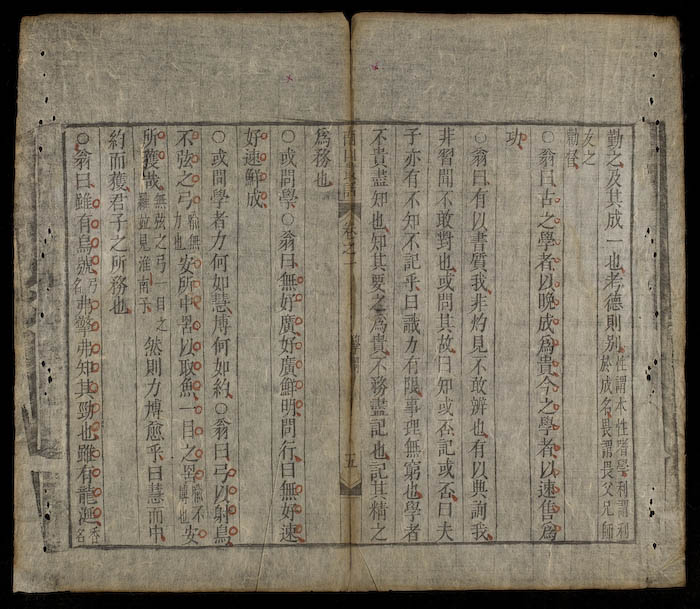 勤之及其成一也考德則別性謂本性習學利謂利於成名畏謂畏父兄師
友之
○翁曰古之學者以晚成為貴今之學者以速售為
功
○翁曰有以書質我非灼見不敢辨也有以典詢我
非習聞不敢對也或問其故曰知或否記或否曰夫
子亦有不知不記乎曰識力有限事理無窮也學者
不貴盡知也知其要之為貴不務盡記也記其精之
為務也
卷之一
五
○或問學○翁曰無好廣好廣鮮明問行曰無好速
好速鮮成
○或問學者力何如慧博何如約○翁曰弓以射鳥
不弦之弓喻無力也安所中罟以取魚一目之罟喻不博也安
所獲哉無弦之弓一目之羅並見淮南子然則力博愈乎曰慧而中
約而獲君子之所務也
○翁曰雖有烏號弓名弗檠弗知其勁也雖有龍淵名